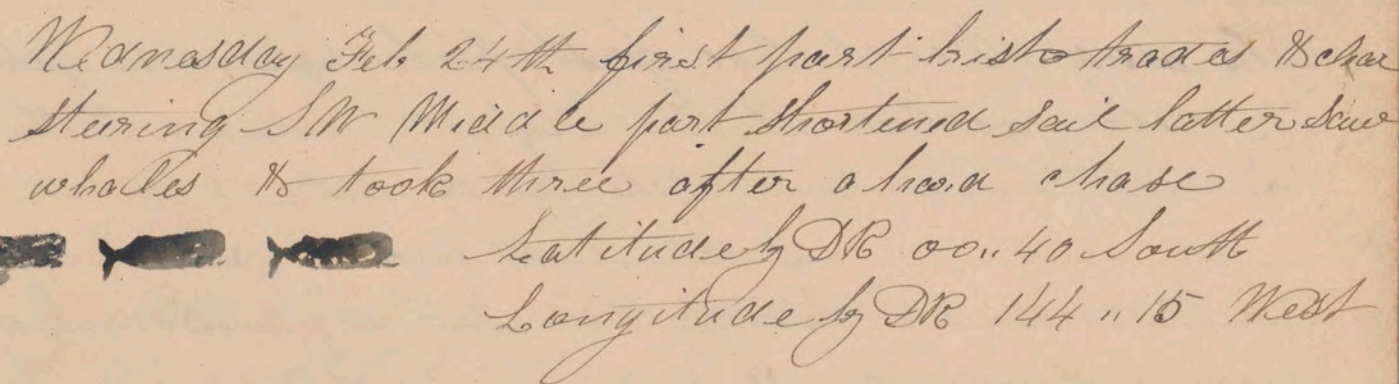 Wednesday Feb 24th first part brisk trades & clear
steering SW Middle part shortened sail latter saw
whales & took three after a hard chase
Latitude by DR 00..40 South
Longitude by DR 144..15 West